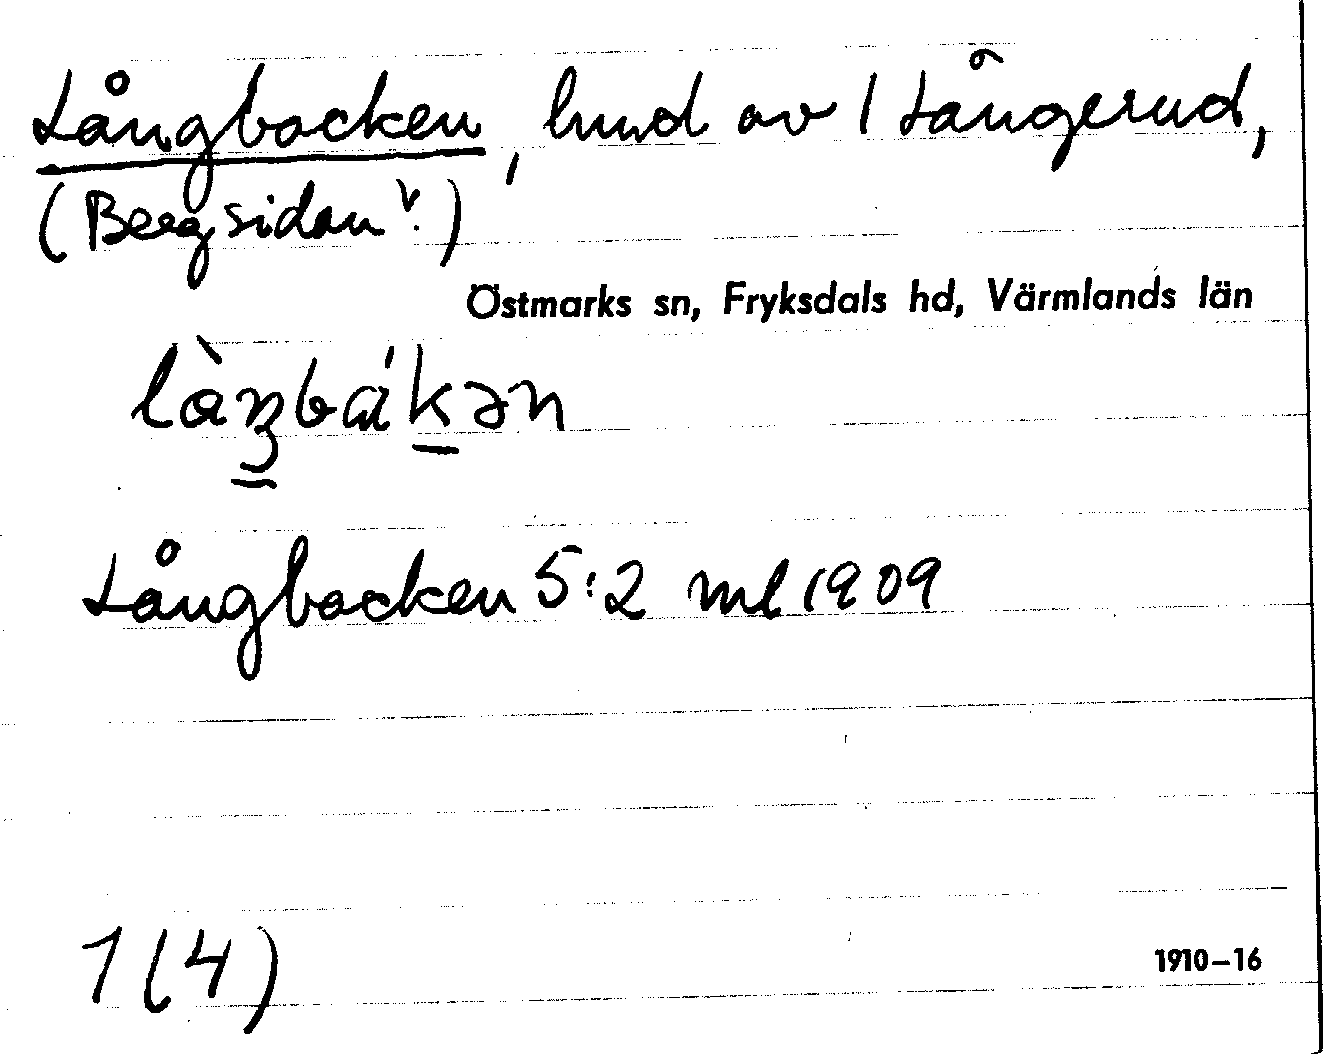 Långbacken, lund av 1 Långerud,
(Bergsidan v.)
Östmarks sn, Fryksdals hd, Värmlands län
Långbacken 5:2 ml 1909
1(4)
1910–16